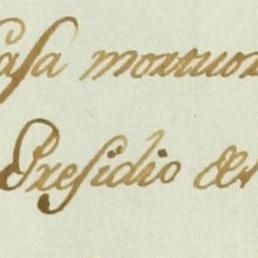 asa mortuor
Presidio &